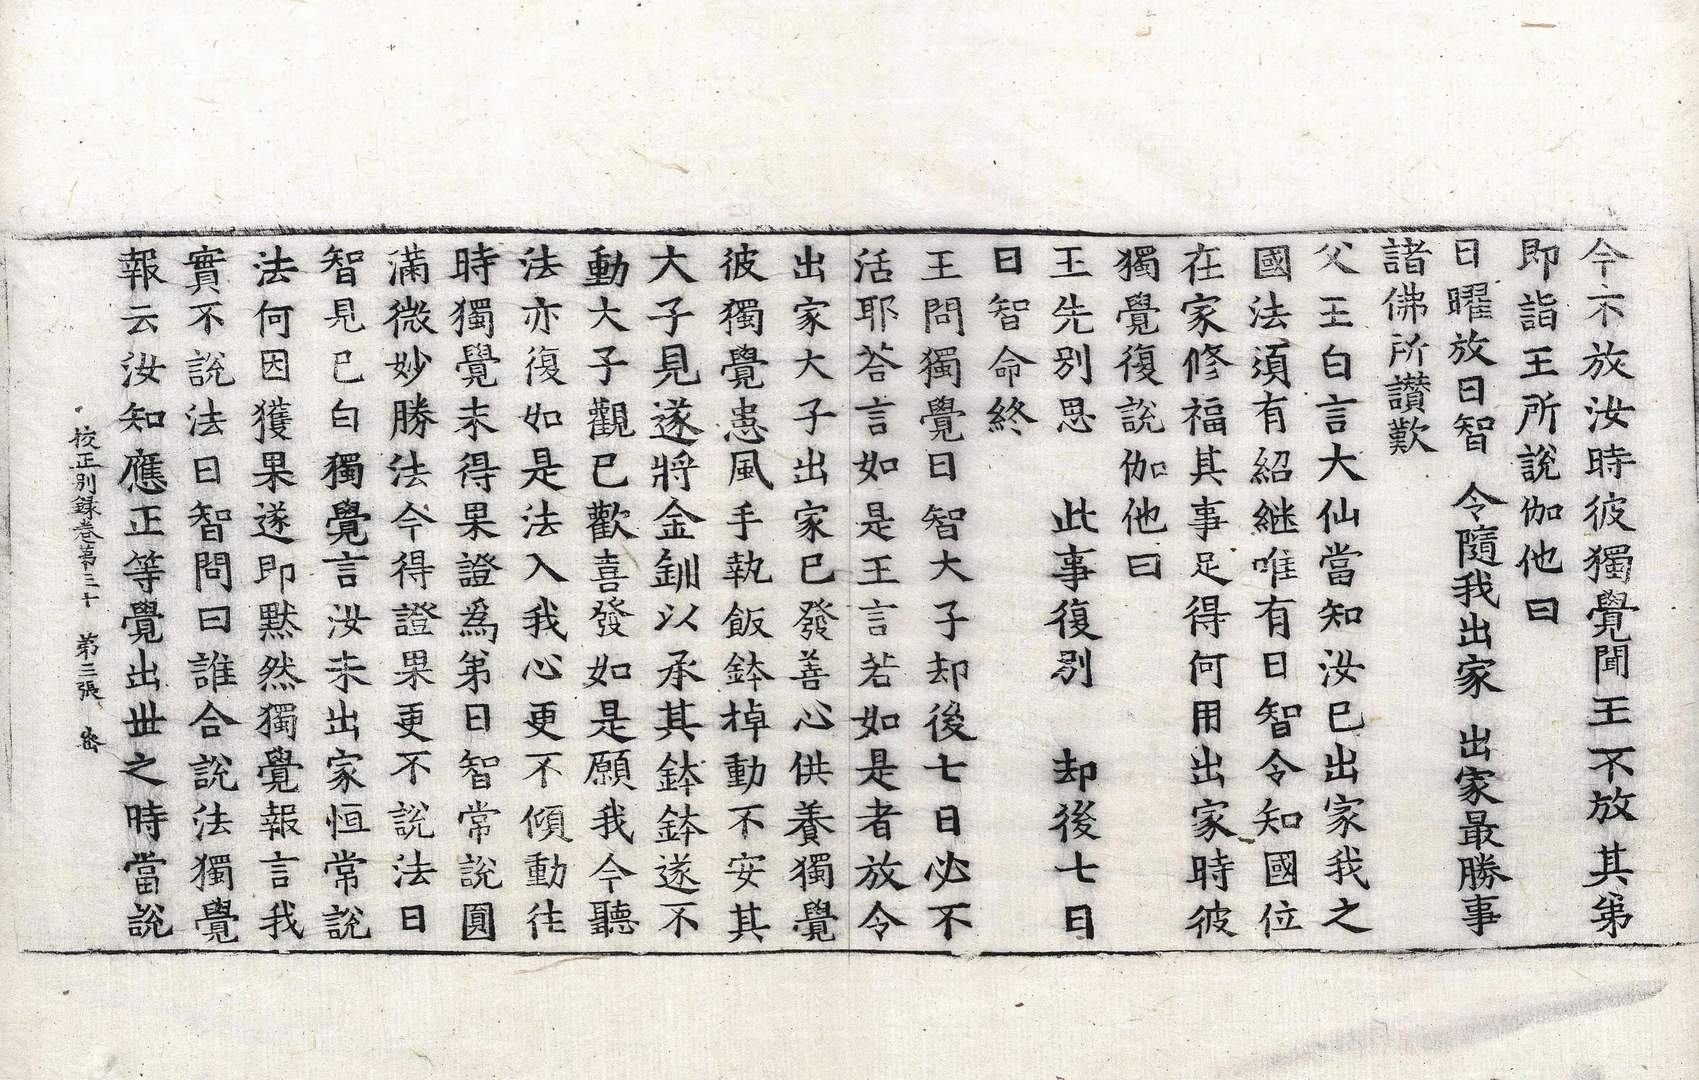 今不放汝時彼獨覺聞王不放其弟
即詣王所說伽他曰
日曜放日智　令隨我出家　出家最勝事
諸佛所讚歎
父王白言大仙當知汝已出家我之
國法須有紹継唯有日智令知國位
在家修福其事足得何用出家時彼
獨覺復說伽他曰
王先別思　此事復別　却後七日
日智命終
王問獨覺日智大子却後七日必不
活耶荅言如是王言若如是者放令
出家大子出家已發善心供養獨覺
彼獨覺患風手執飯鉢掉動不安其
大子見遂將金釧以承其鉢鉢遂不
動大子觀已歡喜發如是願我今聽
法亦復如是法入我心更不傾動往
時獨覺未得果證爲弟日智常說圓
滿微妙勝法今得證果更不說法日
智見已白獨覺言汝未出家恒常說
法何因獲果遂即黙然獨覺報言我
實不說法日智問曰誰合說法獨覺
報云汝知應正等覺出丗之時當說
校正別録卷第三十　第三張　密